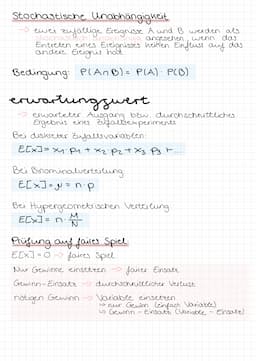 Stochastische Unabhängigkeit
→ zwei zufällige Ereignisse A und B werden als
angesehen, wenn das
Eintreten eines Ereignisses keinen Einfluss auf das
andere Ereignis hat
Bedingung: P(A∩B) = P(A) · P(B)
erwartungswert
→ erwarteter Ausgang bzw. durchschnittliches
Ergebnis eines Zufallsexperiments
Bei diskreter Zufallsvariablen:
E[x] = x₁·p₁ + x₂·p₂ + x₃·p₃ + ...
Bei Binominalverteilung
E[x] = μ = n · p
Bei Hypergeometrischen Verteilung
E[x] = n · M/N
Prüfung auf faires Spiel
E[x] = 0 → faires Spiel
Nur Gewinne einsetzen → fairer Einsatz
Gewinn-Einsatz → durchschnittlicher Verlust
nötigen Gewinn → Variable einsetzen
→ nur Gewinn (einfach Variable)
↳ Gewinn - Einsatz (Variable - Einsatz)